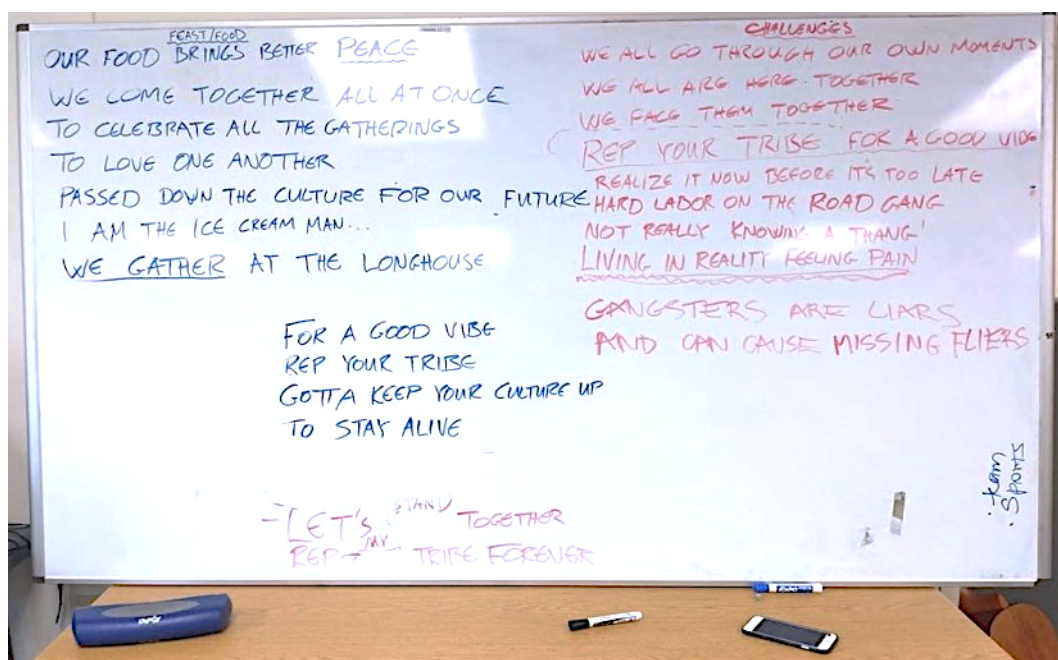 FEAST/FOOD
OUR FOOD BRINGS BETTER PEACE
WE COME TOGETHER ALL AT ONCE
TO CELEBRATE ALL THE GATHERINGS
TO LOVE ONE ANOTHER
PASSED DOWN THE CULTURE FOR OUR FUTURE
I AM THE ICE CREAM MAN...
WE GATHER AT THE LONGHOUSE
FOR A GOOD VIBE
REP YOUR TRIBE
GOTTA KEEP YOUR CULTURE UP
TO STAY ALIVE
-LET'S STAND TOGETHER
REP MY TRIBE FOREVER
CHALLENGES
WE ALL GO THROUGH OUR OWN MOMENTS
WE ALL ARE HERE TOGETHER
WE FACE THEM TOGETHER
REP YOUR TRIBE FOR A GOOD VIBE
REALIZE IT NOW BEFORE IT'S TOO LATE
HARD LABOR ON THE ROAD GANG
NOT REALLY KNOWING A THANG'
LIVING IN REALITY FEELING PAIN
GANGSTERS ARE LIARS
AND CAN CAUSE MISSING FLIERS
team
sports
EXPO